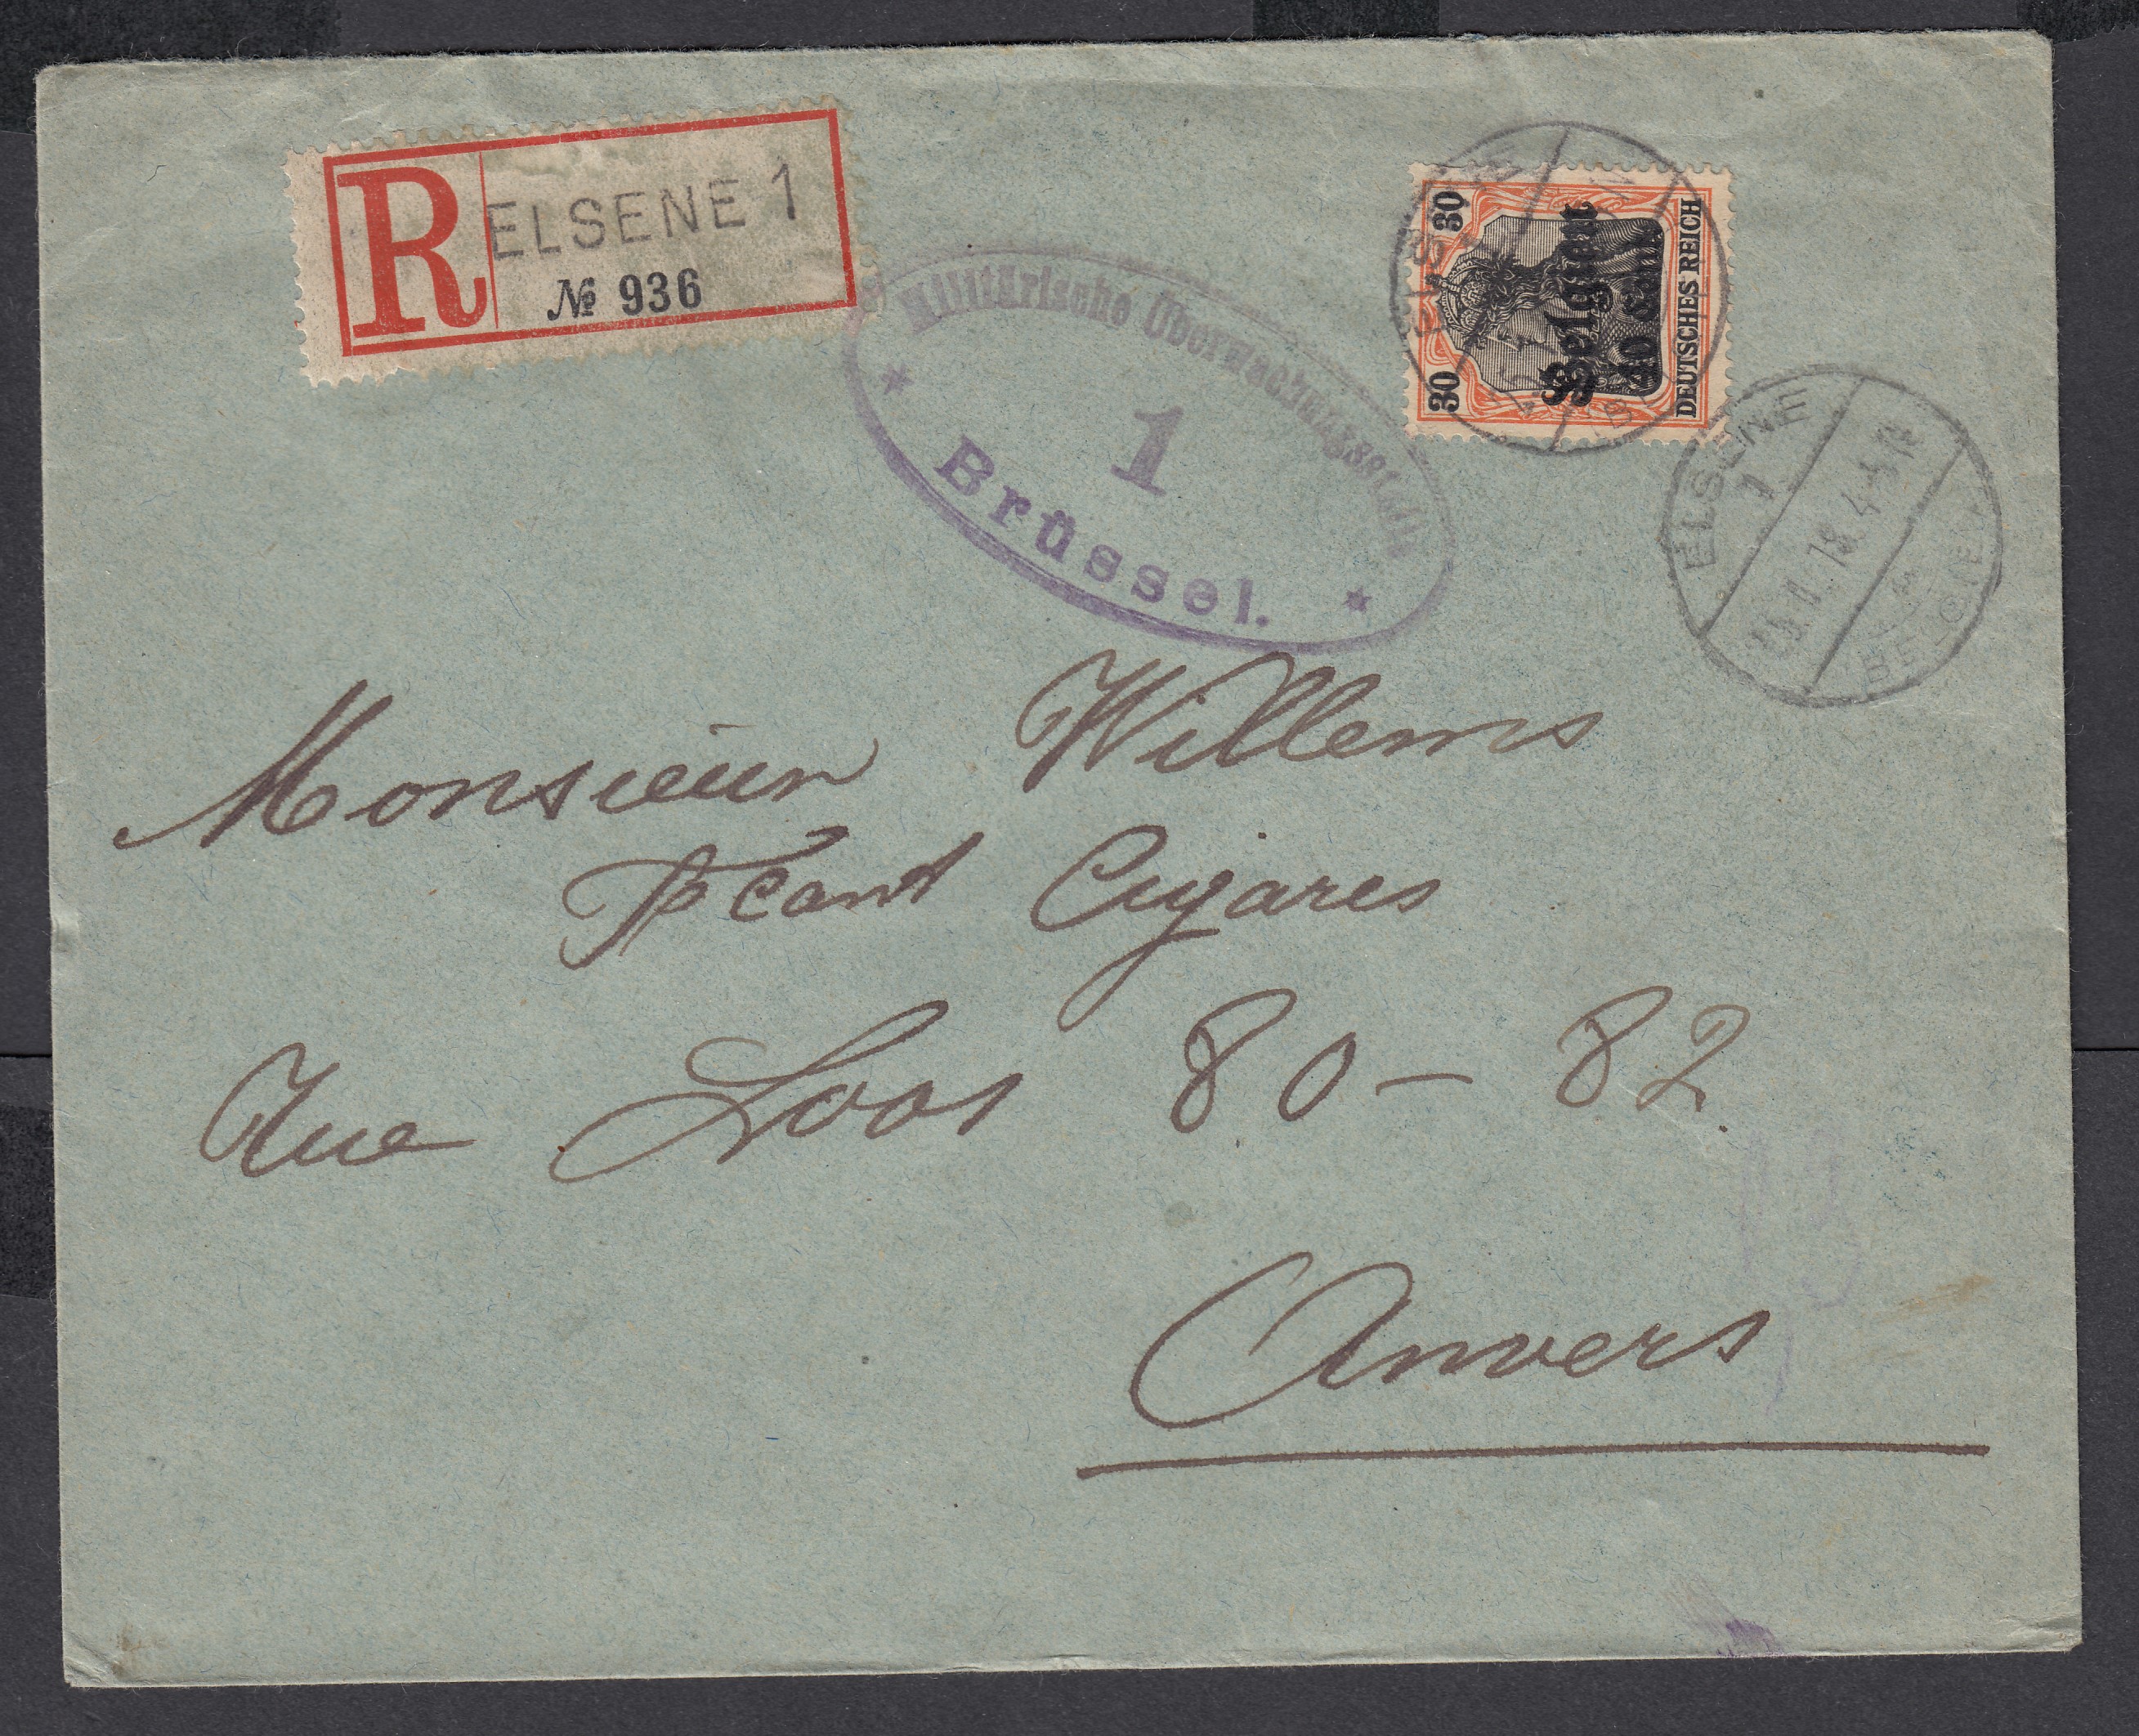 R ELSENE 1
№ 936
Militärische Überwachungsstelle
1
Brüssel.
30 30
Belgien
40 Cent.
DEUTSCHES REICH
ELSENE
1
18. 4-5
BELGIEN
Monsieur Willems
Cigares
Rue Loos 80 - 82
Anvers